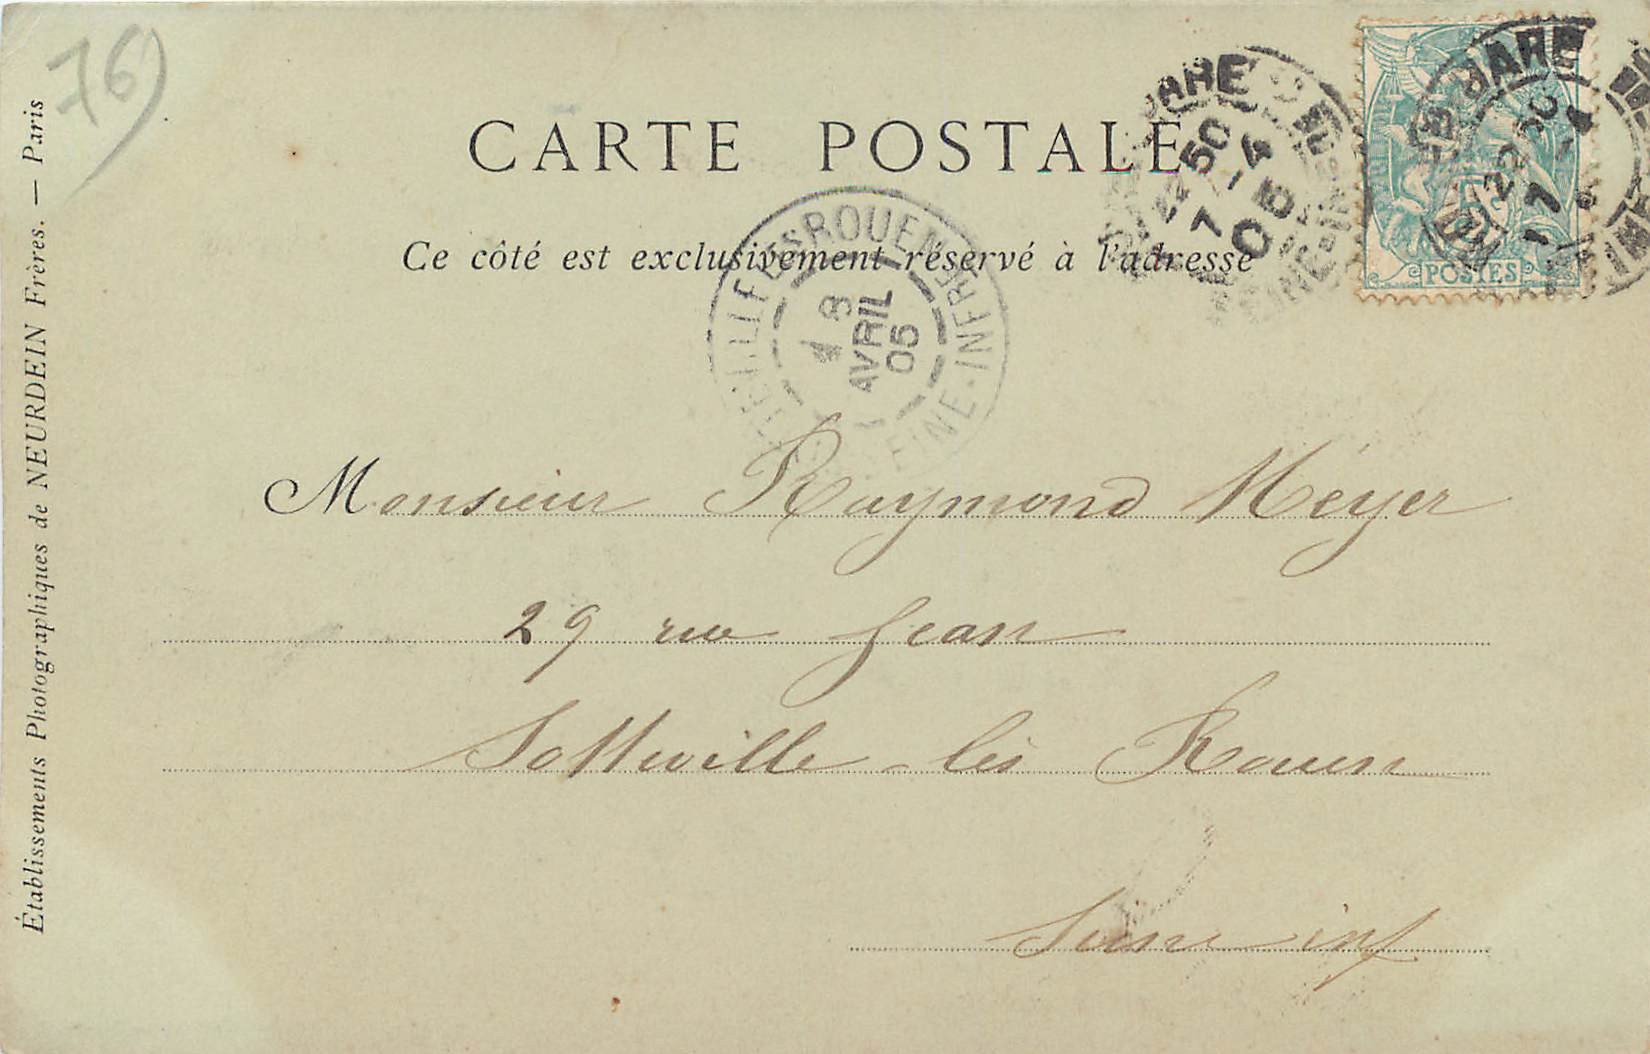 76)
CARTE POSTALE
Ce côté est exclusivement réservé à l'adresse
GARE
22 50
7 - 4
05
SEINE-INFRE
GARE
22 50
7 - 4
POSTES
LES ROUEN
SEINE-INFRE
8
AVRIL
05
Monsieur Raymond Méyer
29 rue Jean
Sotteville - lès Rouen
Seine inf
Établissements Photographiques de NEURDEIN Frères. — Paris